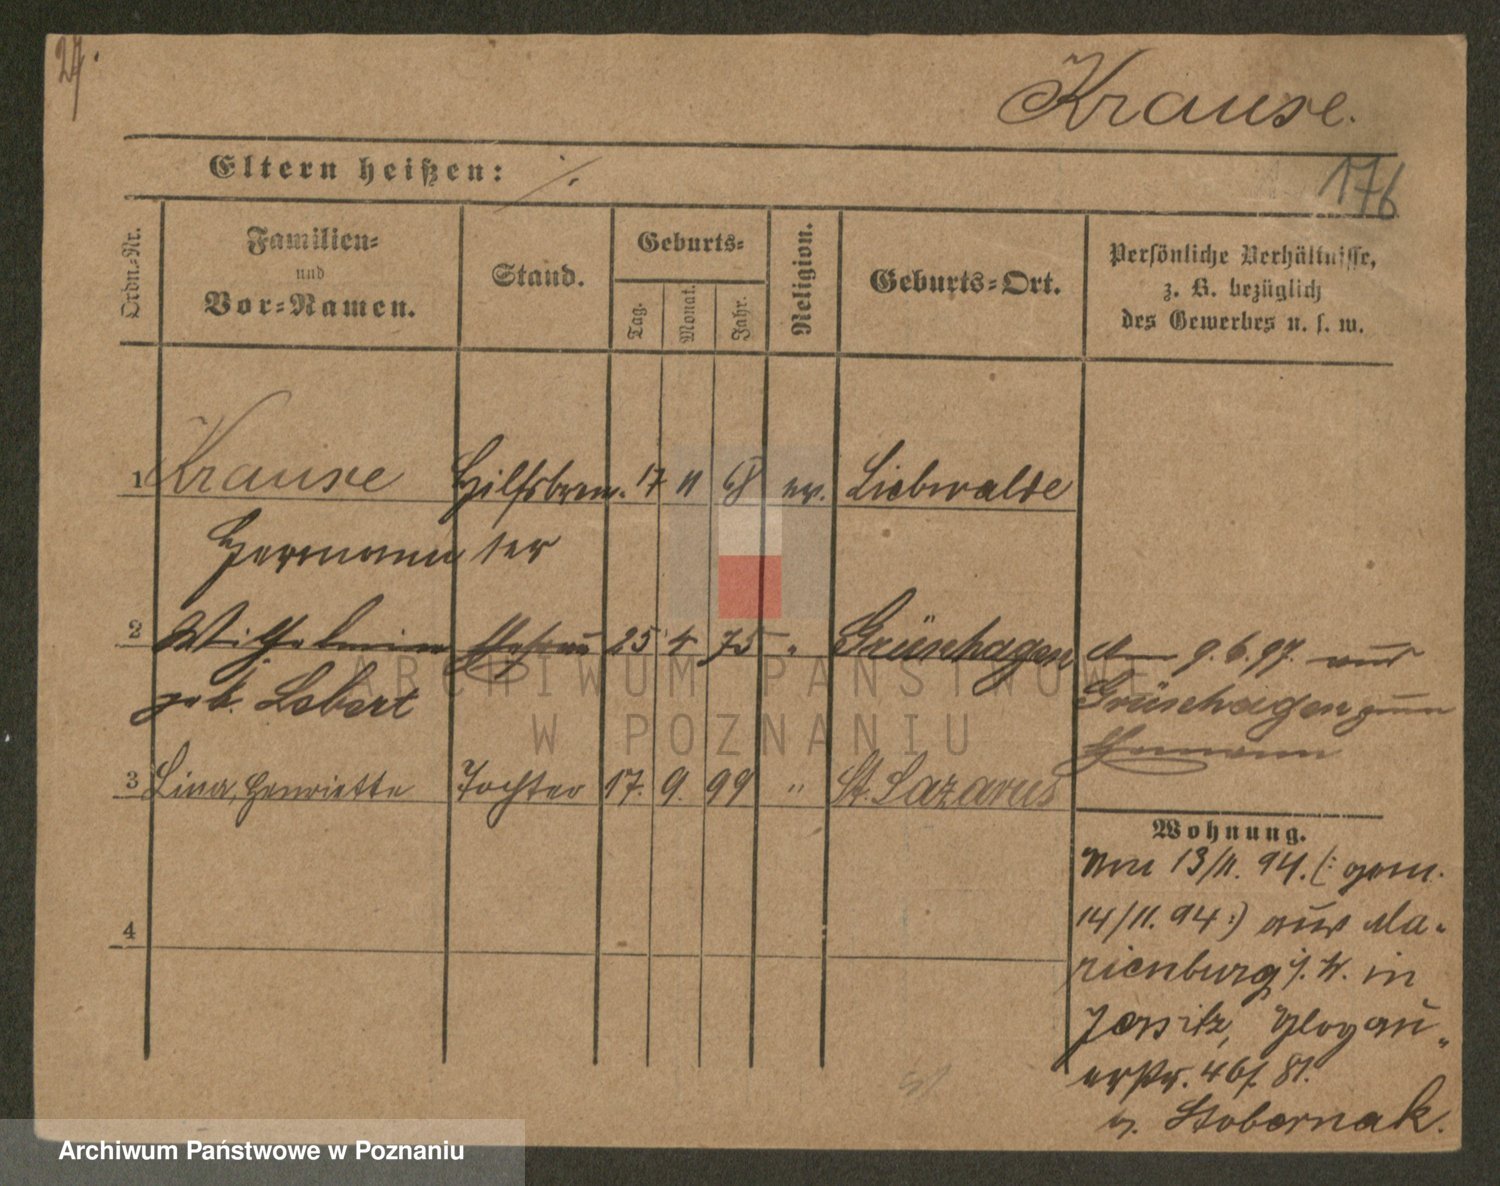 27.
Krause.
Eltern heißen: ./.
176
Ordn.-Nr.
Familien-
und
Vor-Namen.
Stand.
Geburts-
Tag.
Monat.
Jahr.
Religion.
Geburts-Ort.
Persönliche Verhältnisse,
z. B. bezüglich
des Gewerbes u. s. w.
1 Krause Hilfsbrem- 17 11 68 ev. Liebwalde
Hermann ser
2 Wilhelmine Ehefrau 25 4 75 " Grünhagen
geb. Lebert
9. 6. 97. aus
Grünhagen zum
Ehemann
3 Lina, Henriette Tochter 17. 9. 99 " St. Lazarus
4
Wohnung.
Von 13/11. 94. (: gem.
14/11. 94 :) aus Ma-
rienburg i. W. in
Jersitz, Glogau-
erstr. 46/. 81.
b. Stobernak.
ARCHIWUM PAŃSTWOWE
W POZNANIU
Archiwum Państwowe w Poznaniu